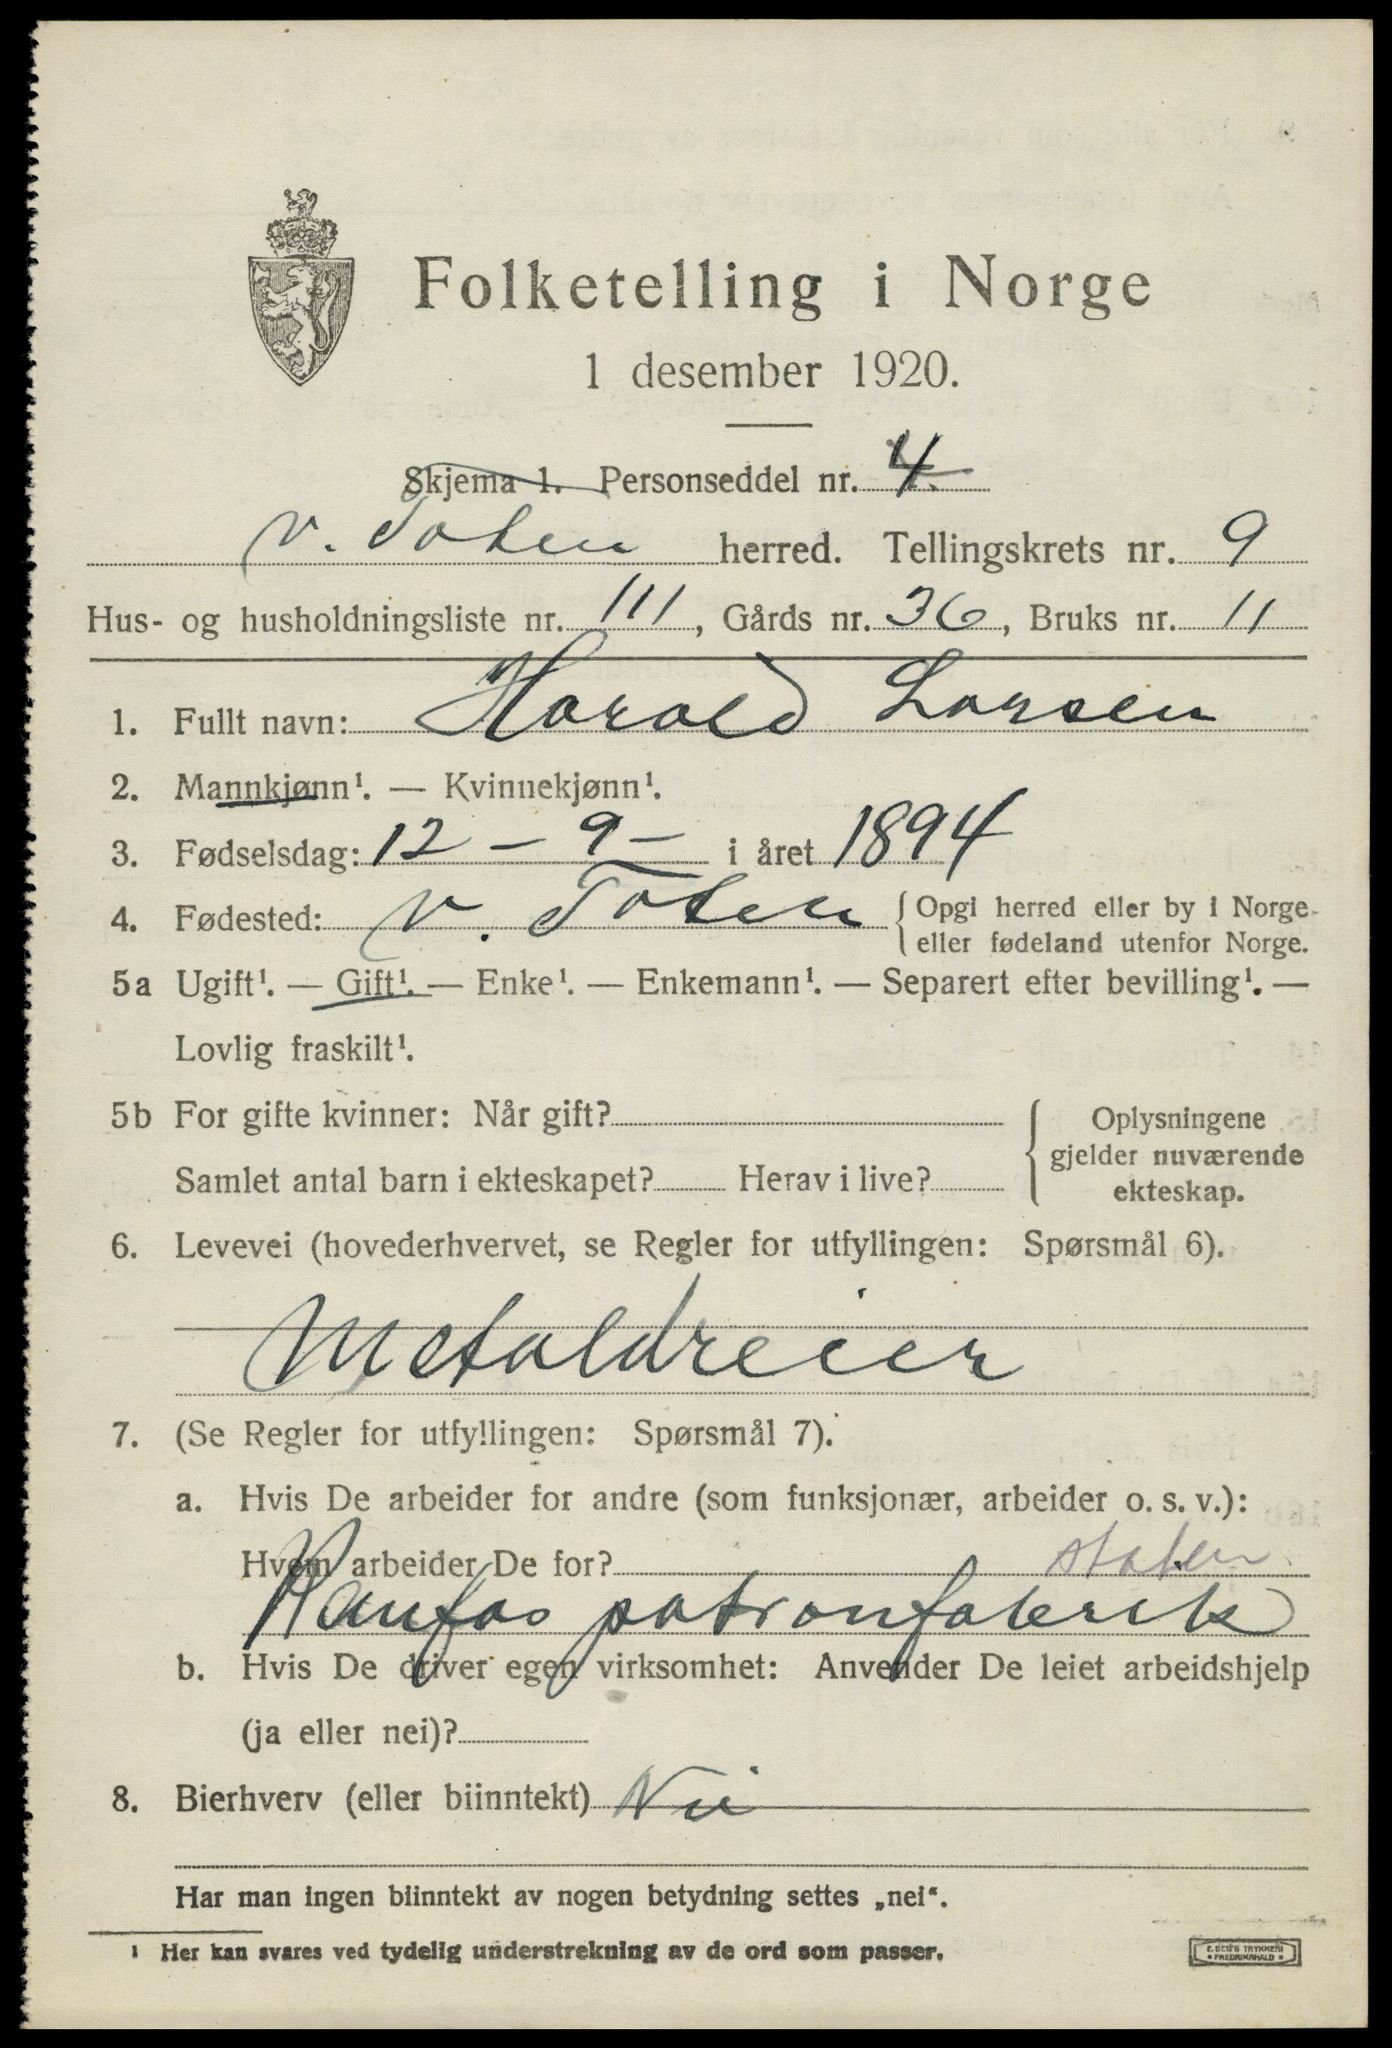 Folketelling i Norge
1 desember 1920.
Skjema 1. Personseddel nr. 4.
V. Toten herred. Tellingskrets nr. 9
Hus- og husholdningsliste nr. 111, Gårds nr. 36, Bruks nr. 11
1. Fullt navn: Harald Larsen
2. Mannkjønn¹. — Kvinnekjønn¹.
3. Fødselsdag: 12 - 9 - i året 1894
4. Fødested: V. Toten {Opgi herred eller by i Norge
eller fødeland utenfor Norge.
5a Ugift¹. — Gift¹. — Enke¹. — Enkemann¹. — Separert efter bevilling¹. —
Lovlig fraskilt¹.
5b For gifte kvinner: Når gift? { Oplysningene
gjelder nuværende
Samlet antal barn i ekteskapet? Herav i live? ekteskap.
6. Levevei (hovederhvervet, se Regler for utfyllingen: Spørsmål 6).
Metaldreier
7. (Se Regler for utfyllingen: Spørsmål 7).
a. Hvis De arbeider for andre (som funksjonær, arbeider o. s. v.):
Hvem arbeider De for? staten
Raufos patronfabrik
b. Hvis De driver egen virksomhet: Anvender De leiet arbeidshjelp
(ja eller nei)?
8. Bierhverv (eller biinntekt) Nei
Har man ingen biinntekt av nogen betydning settes „nei“.
¹ Her kan svares ved tydelig understrekning av de ord som passer.
E. SEM'S TRYKKERI
FREDRIKSHALD